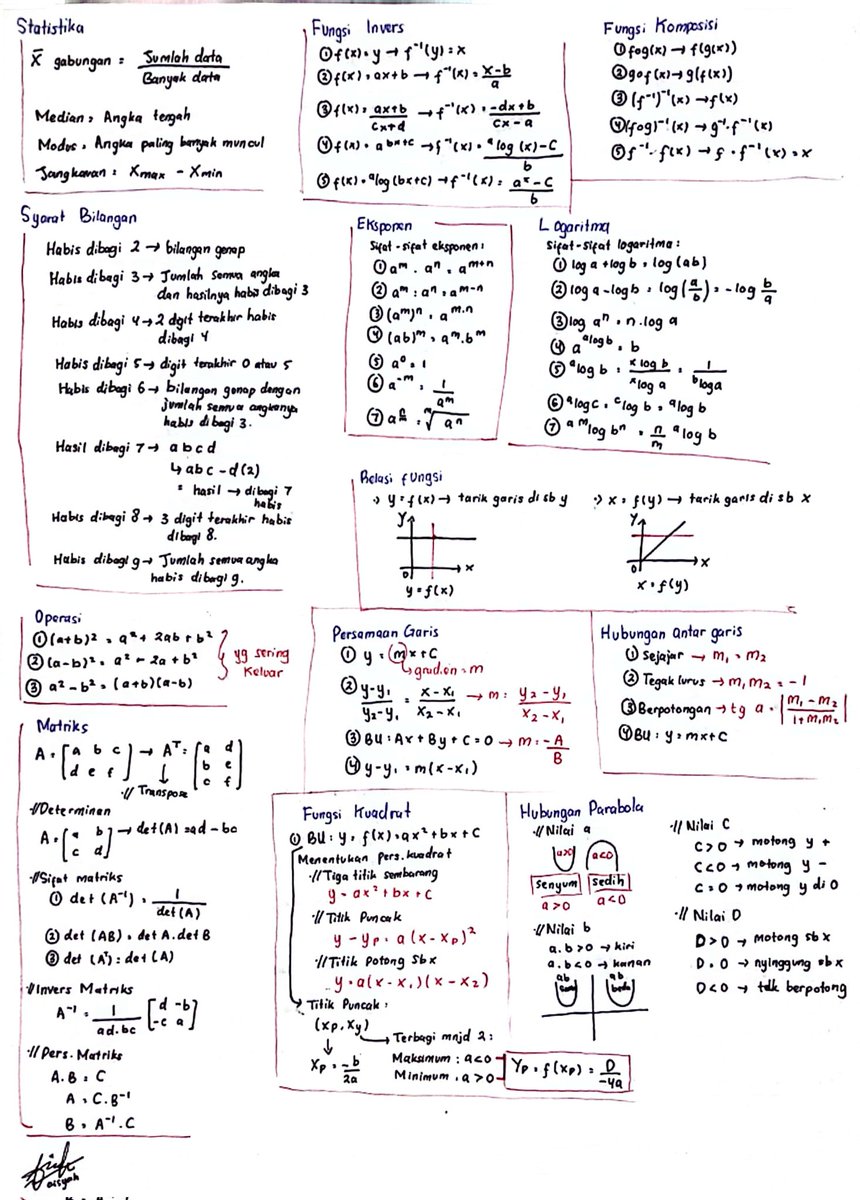 Statistika
X̄ gabungan = Jumlah data / Banyak data
Median = Angka tengah
Modus = Angka paling banyak muncul
Jangkauan = Xmax - Xmin
Fungsi Invers
① f(x) = y → f⁻¹(y) = x
② f(x) = ax+b → f⁻¹(x) = (x-b)/a
③ f(x) = (ax+b)/(cx+d) → f⁻¹(x) = (-dx+b)/(cx-a)
④ f(x) = a^(bx+c) → f⁻¹(x) = (ᵃlog (x) - C)/b
⑤ f(x) = ᵃlog (bx+c) → f⁻¹(x) = (aˣ - C)/b
Fungsi Komposisi
① fog(x) → f(g(x))
② gof(x) → g(f(x))
③ (f⁻¹)⁻¹(x) → f(x)
④ (fog)⁻¹(x) → g⁻¹·f⁻¹(x)
⑤ f⁻¹·f(x) → f·f⁻¹(x) = x
Syarat Bilangan
Habis dibagi 2 → bilangan genap
Habis dibagi 3 → Jumlah semua angka
dan hasilnya habis dibagi 3
Habis dibagi 4 → 2 digit terakhir habis
dibagi 4
Habis dibagi 5 → digit terakhir 0 atau 5
Habis dibagi 6 → bilangan genap dengan
jumlah semua angkanya
habis dibagi 3.
Hasil dibagi 7 → abcd
↳ abc - d(2)
= hasil → dibagi 7
habis
Habis dibagi 8 → 3 digit terakhir habis
dibagi 8.
Habis dibagi 9 → Jumlah semua angka
habis dibagi 9.
Eksponen
Sifat-sifat eksponen:
① aᵐ . aⁿ = aᵐ⁺ⁿ
② aᵐ : aⁿ = aᵐ⁻ⁿ
③ (aᵐ)ⁿ = aᵐ·ⁿ
④ (ab)ᵐ = aᵐ.bᵐ
⑤ a⁰ = 1
⑥ a⁻ᵐ = 1/aᵐ
⑦ a^(n/m) = ᵐ√aⁿ
Logaritma
Sifat-sifat logaritma:
① log a + log b = log (ab)
② log a - log b = log (a/b) = - log b/a
③ log aⁿ = n . log a
④ a^(ᵃlog b) = b
⑤ ᵃlog b = ˣlog b / ˣlog a = 1 / ᵇlog a
⑥ ᵃlog c = ᶜlog b = ᵃlog b
⑦ ᵃ^ᵐ log bⁿ = n/m ᵃlog b
Relasi fungsi
y = f(x) → tarik garis di sb y
x = f(y) → tarik garis di sb x
Y
0
x
y = f(x)
Y
0
x
x = f(y)
Operasi
① (a+b)² = a² + 2ab + b²
② (a-b)² = a² - 2a + b²
③ a² - b² = (a+b)(a-b)
yg sering
keluar
Persamaan Garis
① y = mx + C
↳ gradien = m
② (y-y₁)/(y₂-y₁) = (x-x₁)/(x₂-x₁) → m = (y₂-y₁)/(x₂-x₁)
③ BU: Ax + By + C = 0 → m = -A/B
④ y - y₁ = m(x - x₁)
Hubungan antar garis
① Sejajar → m₁ = m₂
② Tegak lurus → m₁ m₂ = -1
③ Berpotongan → tg a = |(m₁ - m₂)/(1 + m₁m₂)|
④ BU: y = mx + C
Matriks
A = [a b c / d e f] → Aᵀ = [a d / b e / c f]
Transpose
Determinan
A = [a b / c d] → det(A) = ad - bc
Sifat matriks
① det (A⁻¹) = 1/det (A)
② det (AB) = det A . det B
③ det (Aᵀ) = det (A)
Invers Matriks
A⁻¹ = 1/ad.bc [d -b / -c a]
Pers. Matriks
A.B = C
A = C.B⁻¹
B = A⁻¹.C
Fungsi Kuadrat
① BU: y = f(x) = ax² + bx + C
Menentukan pers. kuadrat
Tiga titik sembarang
y = ax² + bx + C
Titik Puncak
y - yp = a(x - xp)²
Titik Potong Sbx
y = a(x - x₁)(x - x₂)
Titik Puncak:
(xp, xy)
Xp = -b/2a
Terbagi mnjd 2:
Maksimum : a<0
Minimum : a>0
Yp = f(xp) = D/-4a
Hubungan Parabola
Nilai a
a>0
a<0
Senyum
sedih
a>0
a<0
Nilai b
a.b > 0 → kiri
a.b < 0 → kanan
ab
sama
ab
beda
Nilai C
C > 0 → motong y +
C < 0 → motong y -
C = 0 → motong y di 0
Nilai D
D > 0 → Motong sbx
D = 0 → nyinggung sbx
D < 0 → tdk berpotong
aisyah